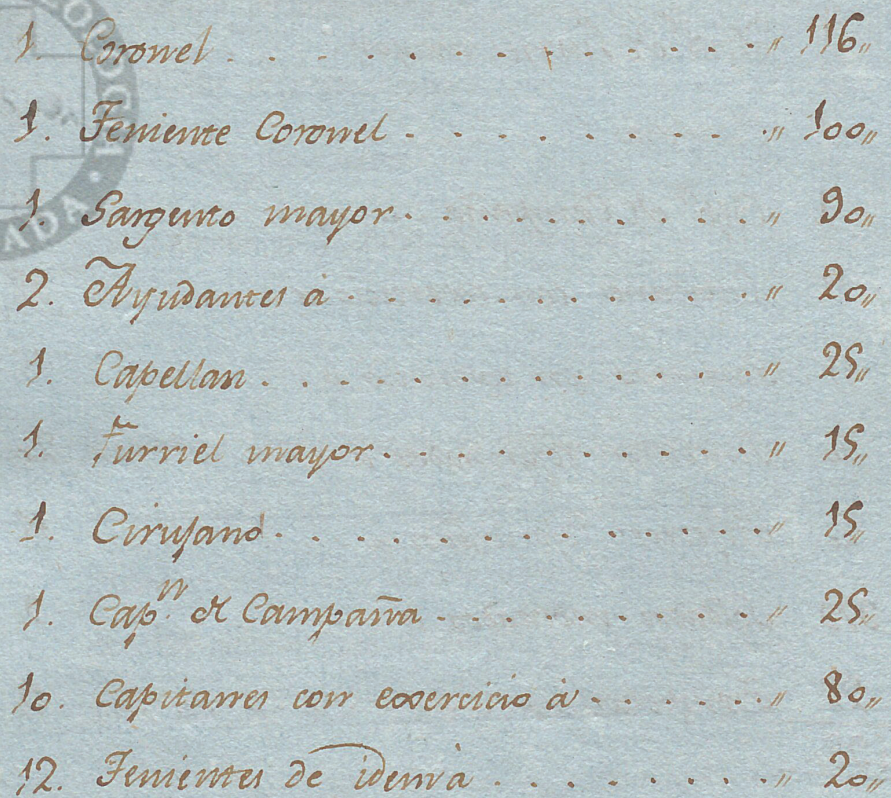 1. Coronel . . . . . . . . . . . . " 116"
1. Teniente Coronel . . . . . . . . . " 100"
1. Sargento mayor . . . . . . . . . " 90"
2. Ayudantes à . . . . . . . . . . . " 20"
1. Capellan . . . . . . . . . . . . " 25"
1. Furriel mayor . . . . . . . . . . " 15"
1. Cirujano . . . . . . . . . . . . " 15"
1. Cap.n de Campaña . . . . . . . . . " 25"
10. Capitanes con exercicio à . . . . . " 80"
12. Tenientes de idem à . . . . . . . . " 20"